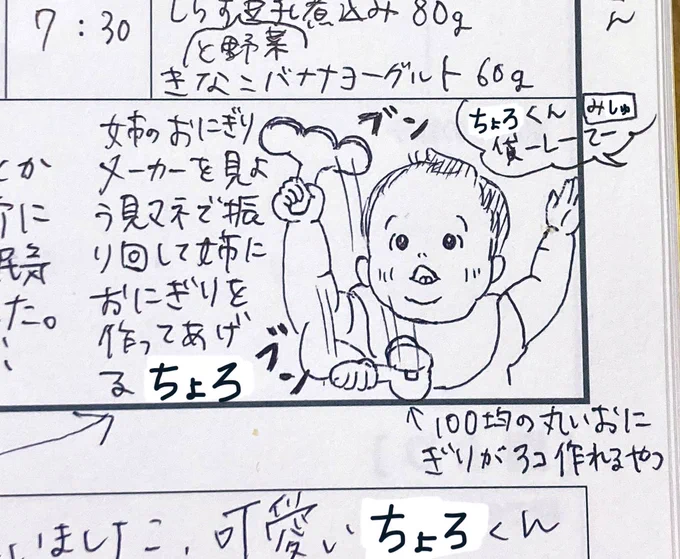 7:30
しらす豆乳煮込み 80g
と野菜
きなこバナナヨーグルト 60g
ん
姉のおにぎり
メーカーを見よ
う見マネで振
り回して姉に
おにぎりを
作ってあげ
る ちょろ
ブン
ブン
ちょろくん
貸ーしーてー
みしゅ
とか
に
た。
↑100均の丸いおに
ぎりが3コ作れるやつ
いました、可愛いちょろくん